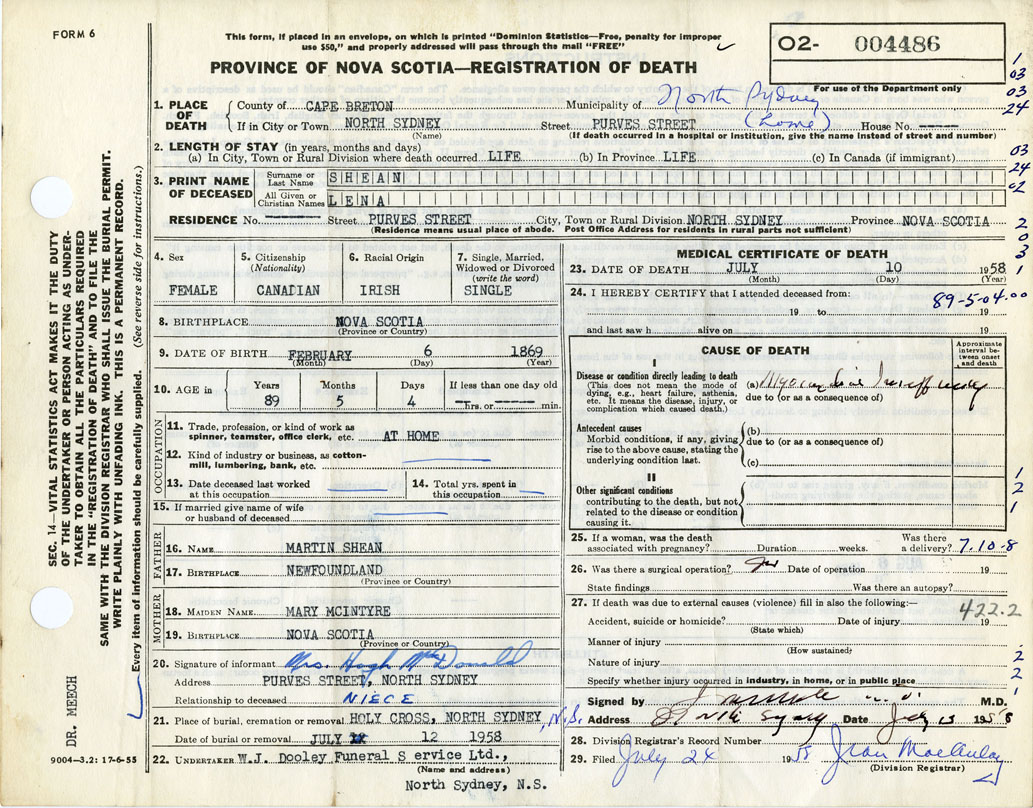 FORM 6
This form, if placed in an envelope, on which is printed "Dominion Statistics—Free, penalty for improper
use $50," and properly addressed will pass through the mail "FREE"
O2- 004486
For use of the Department only
PROVINCE OF NOVA SCOTIA—REGISTRATION OF DEATH
1. PLACE OF DEATH
County of CAPE BRETON Municipality of North Sydney
If in City or Town NORTH SYDNEY Street PURVES STREET (home) House No.
(Name) (If death occurred in a hospital or institution, give the name instead of street and number)
2. LENGTH OF STAY (in years, months and days)
(a) In City, Town or Rural Division where death occurred LIFE (b) In Province LIFE (c) In Canada (if immigrant)
3. PRINT NAME OF DECEASED
Surname or Last Name SHEAN
All Given or Christian Names LENA
RESIDENCE No. Street PURVES STREET City, Town or Rural Division NORTH SYDNEY Province NOVA SCOTIA
(Residence means usual place of abode. Post Office Address for residents in rural parts not sufficient)
1
03
03
24
03
24
02
2
0
3
1
4. Sex FEMALE
5. Citizenship (Nationality) CANADIAN
6. Racial Origin IRISH
7. Single, Married, Widowed or Divorced (write the word) SINGLE
8. BIRTHPLACE NOVA SCOTIA
(Province or Country)
9. DATE OF BIRTH FEBRUARY 6 1869
(Month) (Day) (Year)
10. AGE in Years 89 Months 5 Days 4 If less than one day old hrs. or min.
OCCUPATION
11. Trade, profession, or kind of work as
spinner, teamster, office clerk, etc. AT HOME
12. Kind of industry or business, as cotton-
mill, lumbering, bank, etc.
13. Date deceased last worked
at this occupation
14. Total yrs. spent in
this occupation
15. If married give name of wife
or husband of deceased
FATHER
16. NAME MARTIN SHEAN
17. BIRTHPLACE NEWFOUNDLAND
(Province or Country)
MOTHER
18. MAIDEN NAME MARY MCINTYRE
19. BIRTHPLACE NOVA SCOTIA
(Province or Country)
20. Signature of informant Mrs. Hugh McDonald
Address PURVES STREET, NORTH SYDNEY
Relationship to deceased NIECE
21. Place of burial, cremation or removal HOLY CROSS, NORTH SYDNEY, N.S.
Date of burial or removal JULY 12 1958
22. UNDERTAKER W.J. Dooley Funeral S ervice Ltd.,
(Name and address)
North Sydney, N.S.
MEDICAL CERTIFICATE OF DEATH
23. DATE OF DEATH JULY 10 1958
(Month) (Day) (Year)
24. I HEREBY CERTIFY that I attended deceased from:
89-5-04.00
19 to 19
and last saw h alive on 19
CAUSE OF DEATH
Approximate interval between onset and death
I
Disease or condition directly leading to death
(This does not mean the mode of
dying, e.g., heart failure, asthenia,
etc. It means the disease, injury, or
complication which caused death.)
(a) Myocardial Insufficiency
due to (or as a consequence of)
Antecedent causes
Morbid conditions, if any, giving
rise to the above cause, stating the
underlying condition last.
(b)
due to (or as a consequence of)
(c)
II
Other significant conditions
contributing to the death, but not
related to the disease or condition
causing it.
1
2
1
25. If a woman, was the death
associated with pregnancy? Duration weeks. Was there
a delivery? 7.10-8
26. Was there a surgical operation? Date of operation 19
State findings Was there an autopsy?
27. If death was due to external causes (violence) fill in also the following:—
422.2
Accident, suicide or homicide? Date of injury 19
(State which)
Manner of injury
(How sustained)
Nature of injury
Specify whether injury occurred in industry, in home, or in public place
2
2
1
Signed by M.D.
Address Sydney Date July 1958
28. Division Registrar's Record Number
29. Filed July 24 1958 Jean MacAulay
(Division Registrar)
SEC. 14—VITAL STATISTICS ACT MAKES IT THE DUTY
OF THE UNDERTAKER OR PERSON ACTING AS UNDER-
TAKER TO OBTAIN ALL THE PARTICULARS REQUIRED
IN THE "REGISTRATION OF DEATH" AND TO FILE THE
SAME WITH THE DIVISION REGISTRAR WHO SHALL ISSUE THE BURIAL PERMIT.
WRITE PLAINLY WITH UNFADING INK. THIS IS A PERMANENT RECORD.
Every item of information should be carefully supplied. (See reverse side for instructions.)
DR. MEECH
9004—3.2: 17-6-55